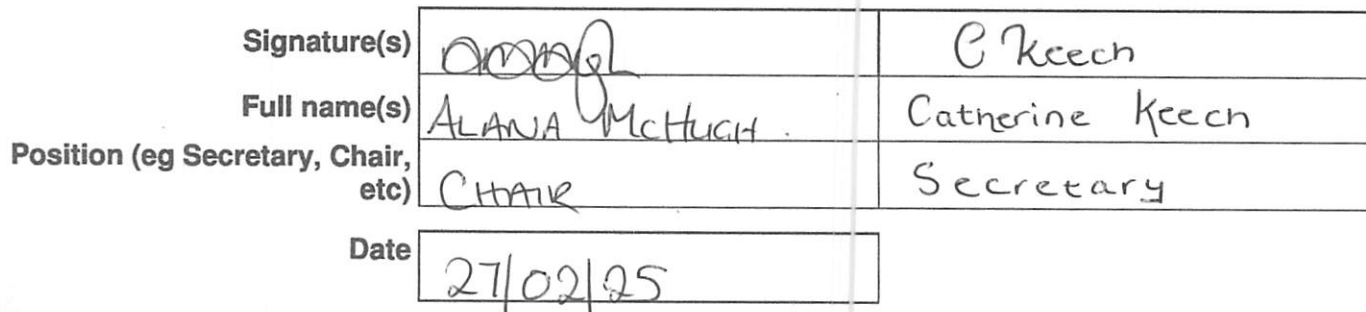 Signature(s) C Keech
Full name(s) ALANA McHUGH. Catherine Keech
Position (eg Secretary, Chair,
etc) CHAIR Secretary
Date 27/02/25